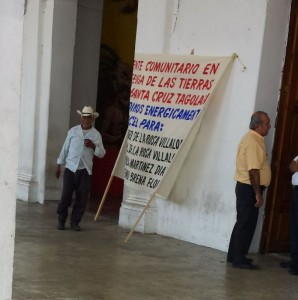 ENTE COMUNITARIO EN
DE LAS TIERRAS
SANTA CRUZ TAGOLA
ENERGICAMENT
CEL PARA:
DE LA ROSA VILLALO
DE LA ROSA VILLAL
MARTINEZ DIA
BREÑA FLO